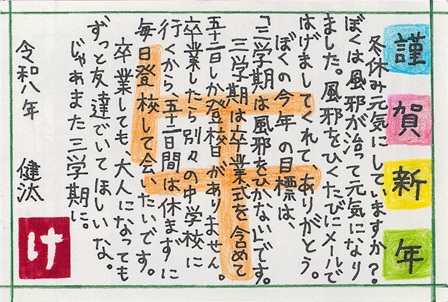 謹賀新年
冬休み元気にしていますか？
ぼくは風邪が治って元気になり
ました。風邪をひくたびにメールで
はげましてくれて、ありがとう。
ぼくの今年の目標は、
「三学期は風邪をひかない」です。
三学期は卒業式を含めて
五十二日しか登校日がありません。
卒業したら別々の中学校に
行くから、五十二日間は休まずに
毎日登校して会いたいです。
卒業しても、大人になっても
ずっと友達でいてほしいな。
じゃあまた三学期に。
令和八年 健汰
け